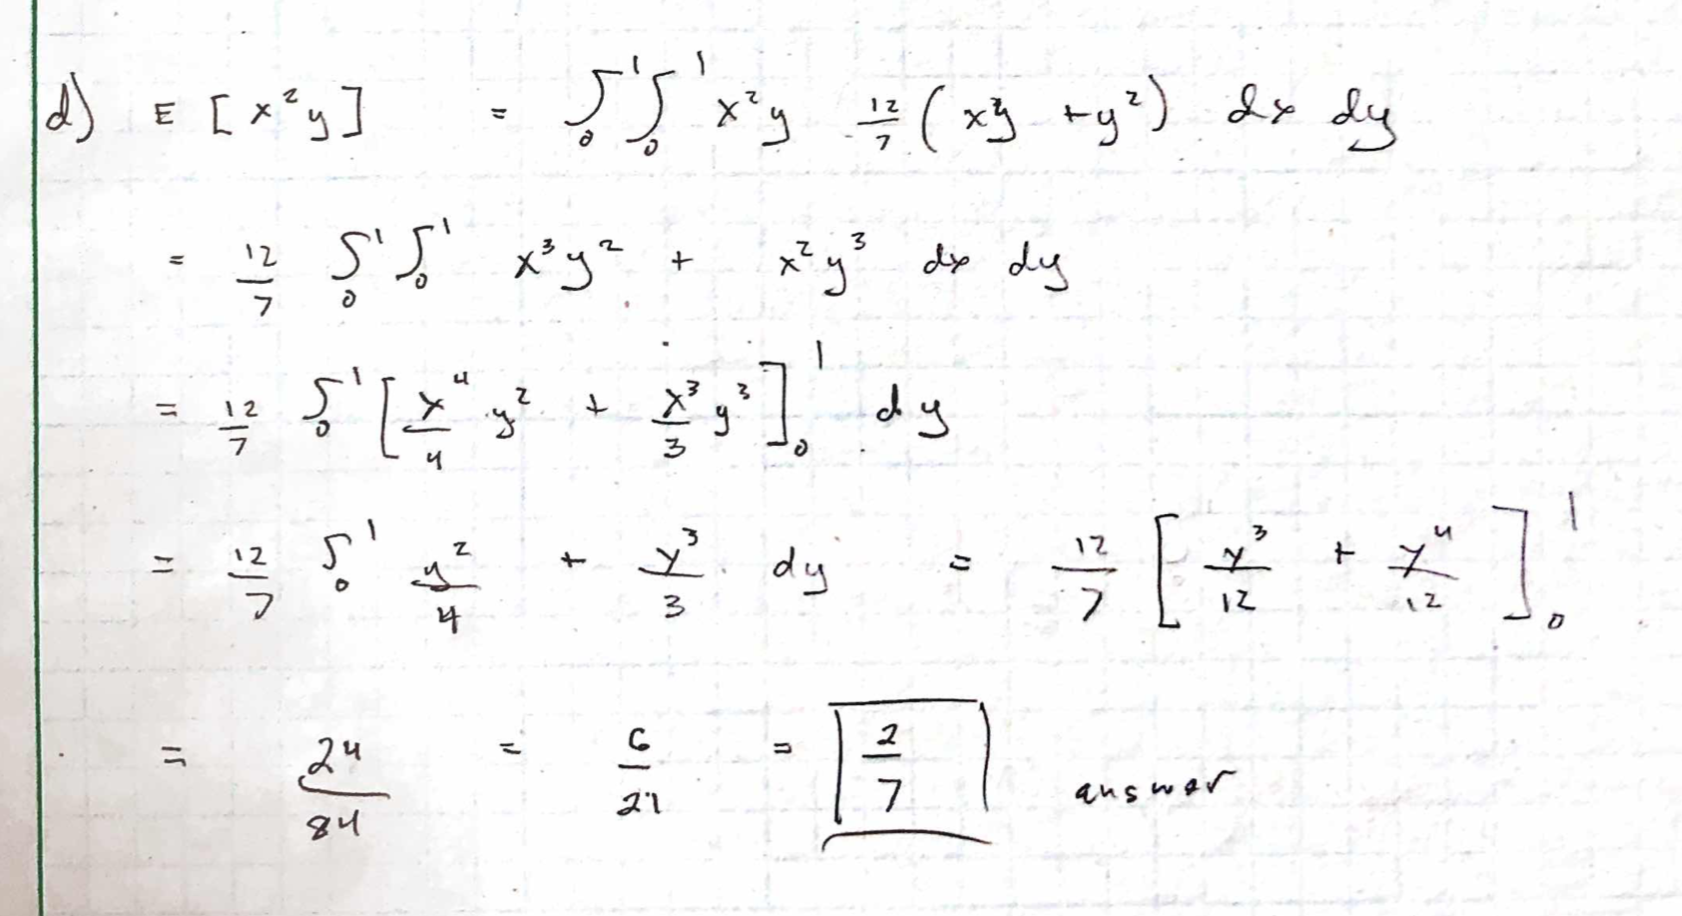 d) E [x²y] = ∫₀¹ ∫₀¹ x²y 12/7 (xy + y²) dx dy
= 12/7 ∫₀¹ ∫₀¹ x³y² + x²y³ dx dy
= 12/7 ∫₀¹ [x⁴/4 y² + x³/3 y³]₀¹ dy
= 12/7 ∫₀¹ y²/4 + y³/3 dy = 12/7 [y³/12 + y⁴/12]₀¹
= 24/84 = 6/21 = 2/7 answer